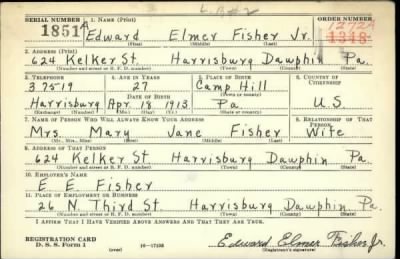 L.B#2
SERIAL NUMBER 1. NAME (Print) ORDER NUMBER
1851 Edward Elmer Fisher Jr. 1272A
(First) (Middle) (Last) 1348
2. ADDRESS (Print)
624 Kelker St. Harrisburg Dawphin Pa.
(Number and street or R. F. D. number) (Town) (County) (State)
3. TELEPHONE 4. AGE IN YEARS 5. PLACE OF BIRTH 6. COUNTRY OF CITIZENSHIP
3 7519 27 Camp Hill
DATE OF BIRTH (Town or county)
Harrisburg Apr. 18 1913 Pa. U S
(Exchange) (Number) (Mo.) (Day) (Yr.) (State or country)
7. NAME OF PERSON WHO WILL ALWAYS KNOW YOUR ADDRESS 8. RELATIONSHIP OF THAT PERSON
Mrs. Mary Jane Fisher Wife
(Mr., Mrs., Miss) (First) (Middle) (Last)
9. ADDRESS OF THAT PERSON
624 Kelker St Harrisburg Dawphin Pa.
(Number and street or R. F. D. number) (Town) (County) (State)
10. EMPLOYER'S NAME
E. E. Fisher
11. PLACE OF EMPLOYMENT OR BUSINESS
26 N. Third St. Harrisburg Dawphin Pa.
(Number and street or R. F. D. number) (Town) (County) (State)
I AFFIRM THAT I HAVE VERIFIED ABOVE ANSWERS AND THAT THEY ARE TRUE.
REGISTRATION CARD
D. S. S. Form 1 (over) 16—17105 Edward Elmer Fisher Jr.
(Registrant's signature)